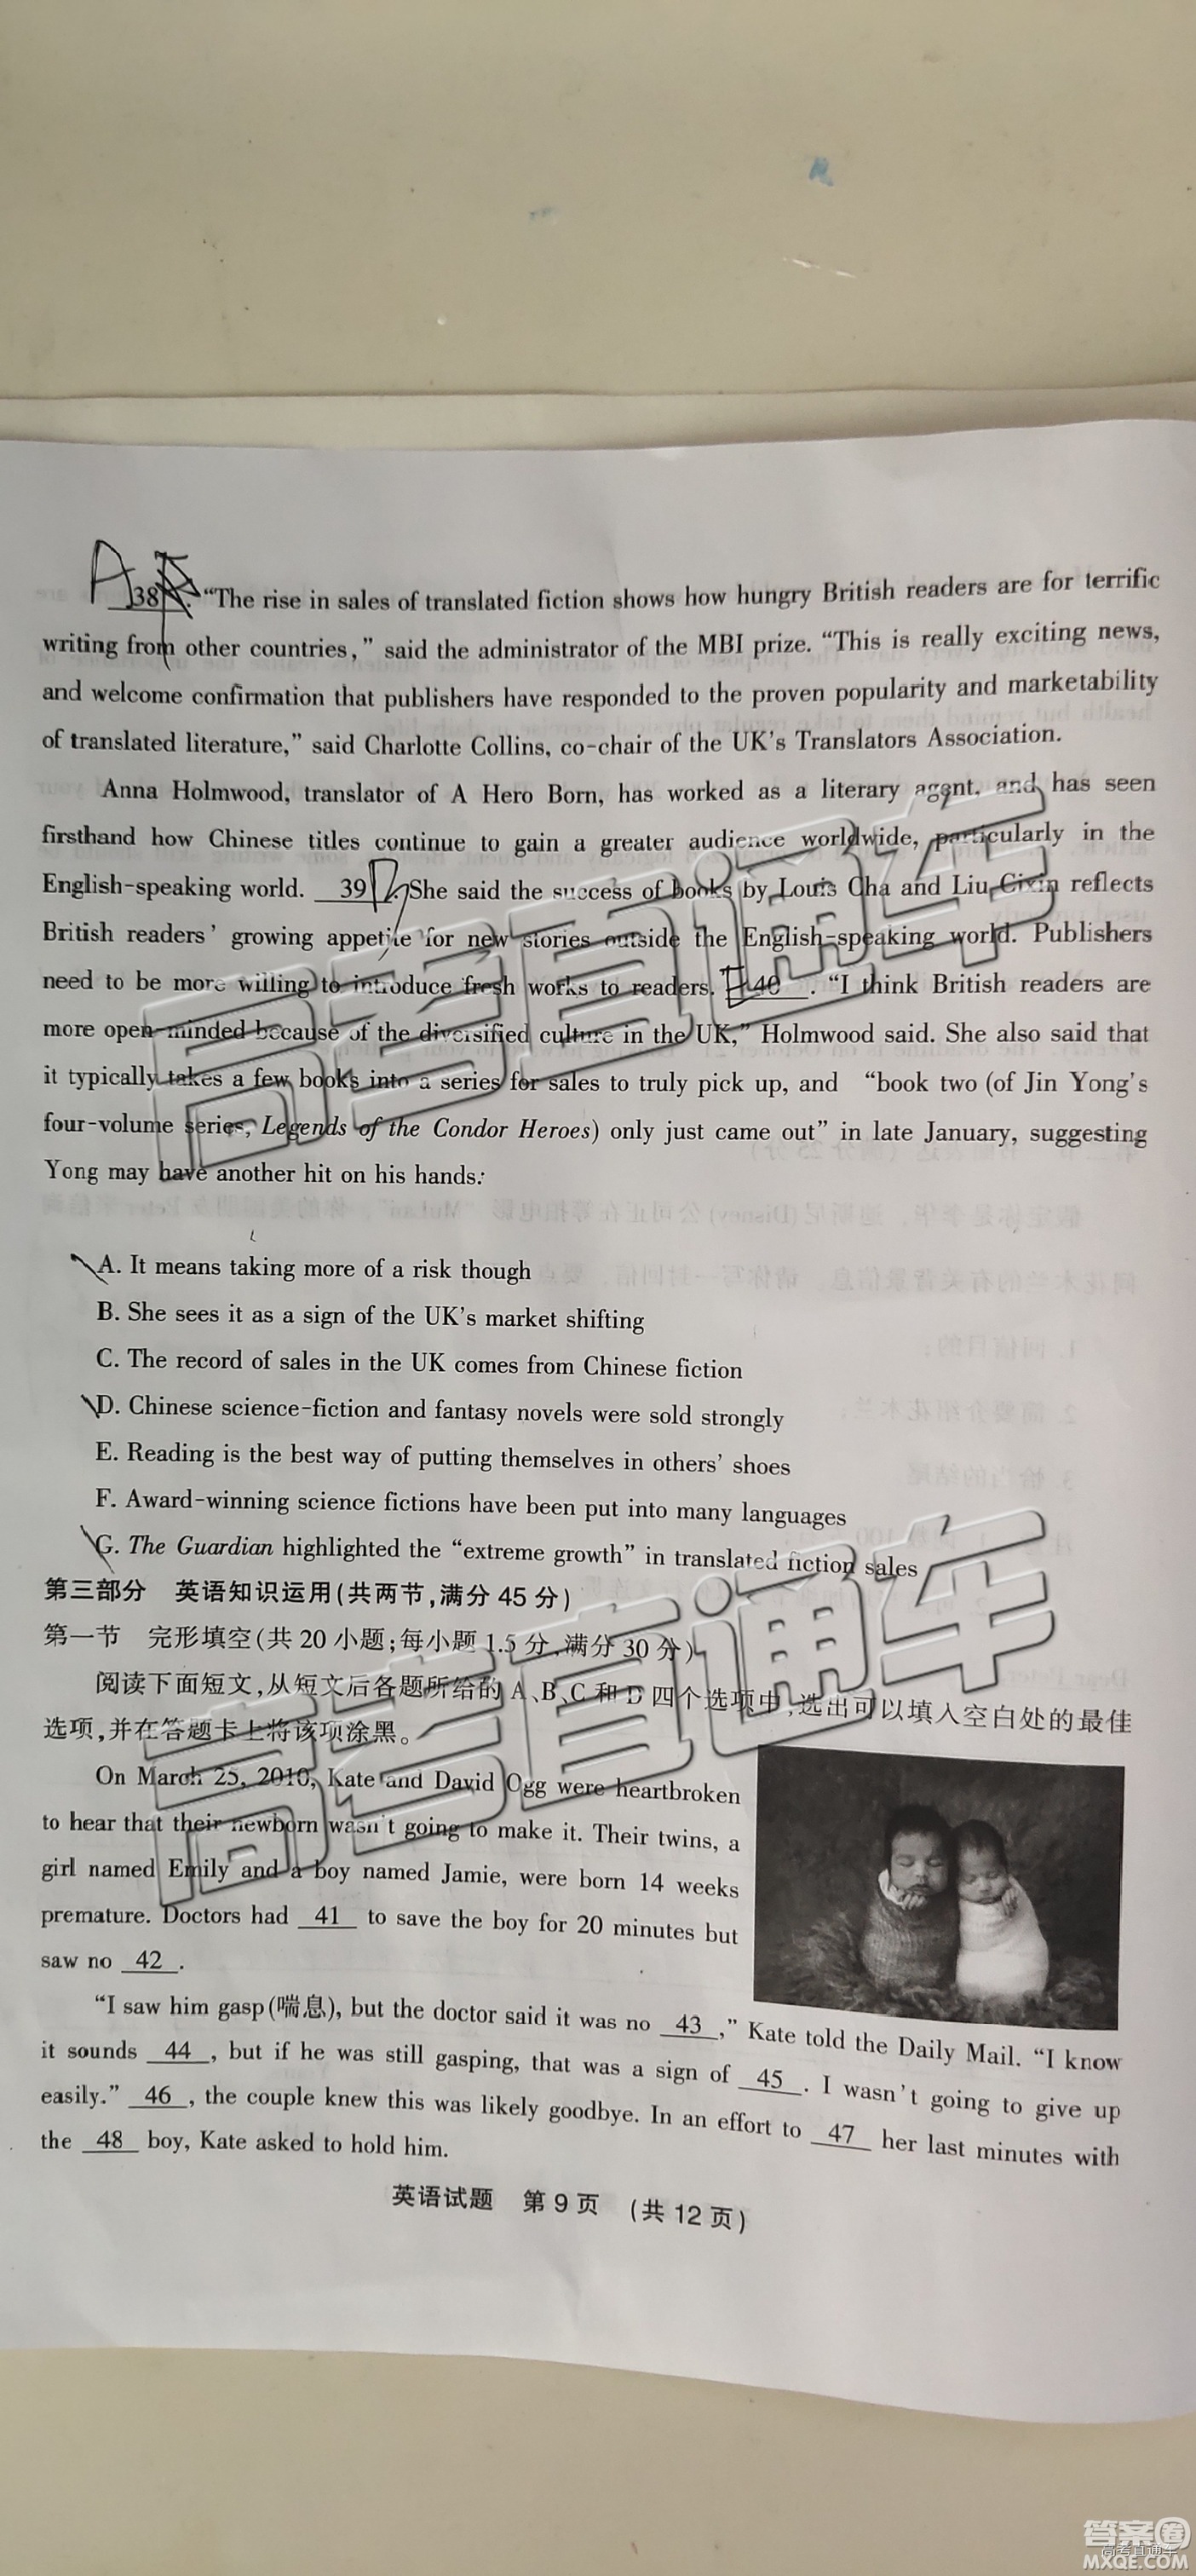 A
38. “The rise in sales of translated fiction shows how hungry British readers are for terrific
writing from other countries,” said the administrator of the MBI prize. “This is really exciting news,
and welcome confirmation that publishers have responded to the proven popularity and marketability
of translated literature,” said Charlotte Collins, co-chair of the UK’s Translators Association.
Anna Holmwood, translator of A Hero Born, has worked as a literary agent, and has seen
firsthand how Chinese titles continue to gain a greater audience worldwide, particularly in the
English-speaking world. 39. She said the success of books by Louis Cha and Liu Cixin reflects
British readers’ growing appetite for new stories outside the English-speaking world. Publishers
need to be more willing to introduce fresh works to readers. 40. “I think British readers are
more open-minded because of the diversified culture in the UK,” Holmwood said. She also said that
it typically takes a few books into a series for sales to truly pick up, and “book two (of Jin Yong’s
four-volume series, Legends of the Condor Heroes) only just came out” in late January, suggesting
Yong may have another hit on his hands.
A. It means taking more of a risk though
B. She sees it as a sign of the UK’s market shifting
C. The record of sales in the UK comes from Chinese fiction
D. Chinese science-fiction and fantasy novels were sold strongly
E. Reading is the best way of putting themselves in others’ shoes
F. Award-winning science fictions have been put into many languages
G. The Guardian highlighted the “extreme growth” in translated fiction sales
第三部分 英语知识运用(共两节,满分45分)
第一节 完形填空(共20小题;每小题1.5分,满分30分)
阅读下面短文,从短文后各题所给的A、B、C和D四个选项中,选出可以填入空白处的最佳
选项,并在答题卡上将该项涂黑。
On March 25, 2010, Kate and David Ogg were heartbroken
to hear that their newborn wasn’t going to make it. Their twins, a
girl named Emily and a boy named Jamie, were born 14 weeks
premature. Doctors had 41 to save the boy for 20 minutes but
saw no 42.
“I saw him gasp(喘息), but the doctor said it was no 43,” Kate told the Daily Mail. “I know
it sounds 44, but if he was still gasping, that was a sign of 45. I wasn’t going to give up
easily.” 46, the couple knew this was likely goodbye. In an effort to 47 her last minutes with
the 48 boy, Kate asked to hold him.
英语试题 第9页 (共12页)
高考直通车
高考直通车
答案圈
高考直通车
MXQE.COM